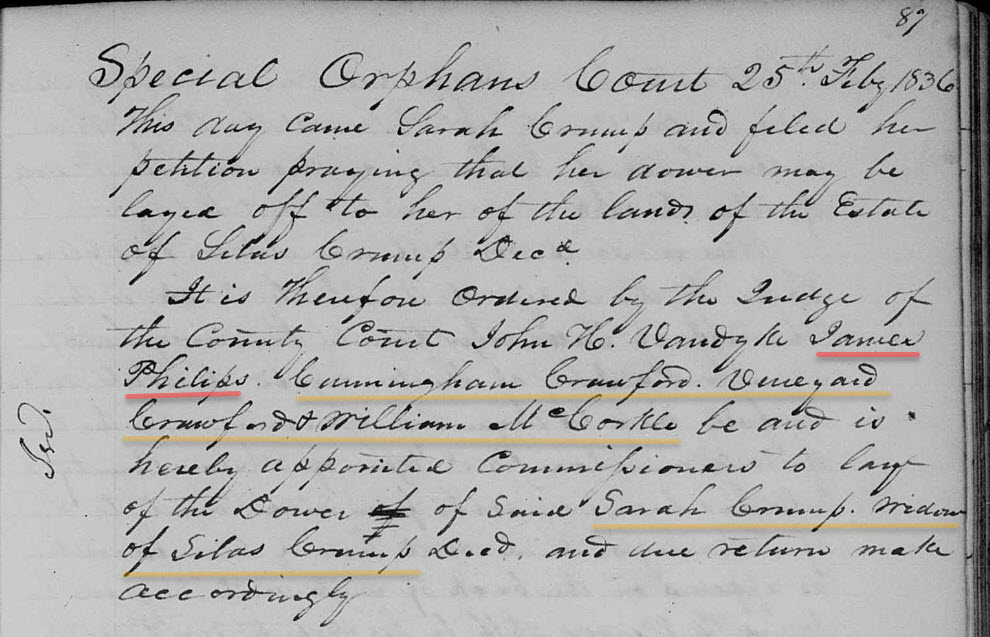 87
Special Orphans Court 25th. Feby 1836
This day Came Sarah Crump and filed her
petition praying that her dower may be
layed off to her of the lands of the Estate
of Silas Crump Decd.
It is Therefore Ordered by the Judge of
the County Court John H. Vandyke James
Philips. Cunningham Crawford. Vineyard
Crawford & William McCorkle be and is
hereby appointed Commissioners to lay
of the Dower of of Said Sarah Crump. widow
of Silas Crump Decd. and due return make
accordingly